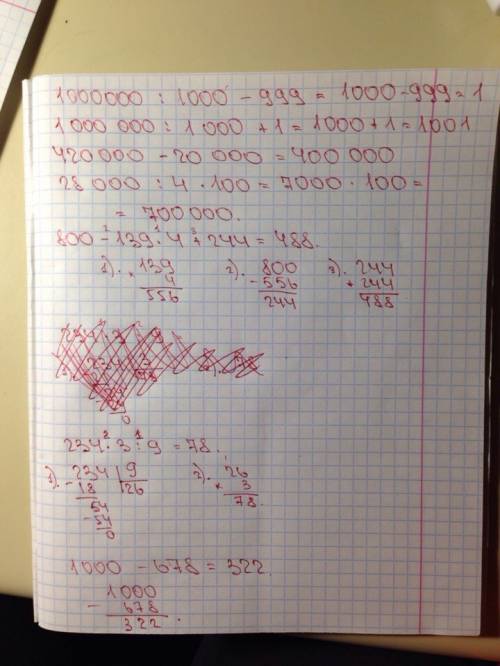 1000000 : 1000 - 999 = 1000-999=1
1 000 000 : 1 000 + 1 = 1000+1=1001
420 000 - 20 000 = 400 000
28 000 : 4 · 100 = 7000 · 100 =
= 700 000.
2 1 3
800 - 139 · 4 + 244 = 488.
1). 139 2). 800 3). 244
× 4 - 556 + 244
556 244 488
2 1
234 · 3 : 9 = 78.
1). 234 9 2). 26
- 18 26 × 3
54 78.
- 54
0
1000 - 678 = 322.
1000
- 678
322.